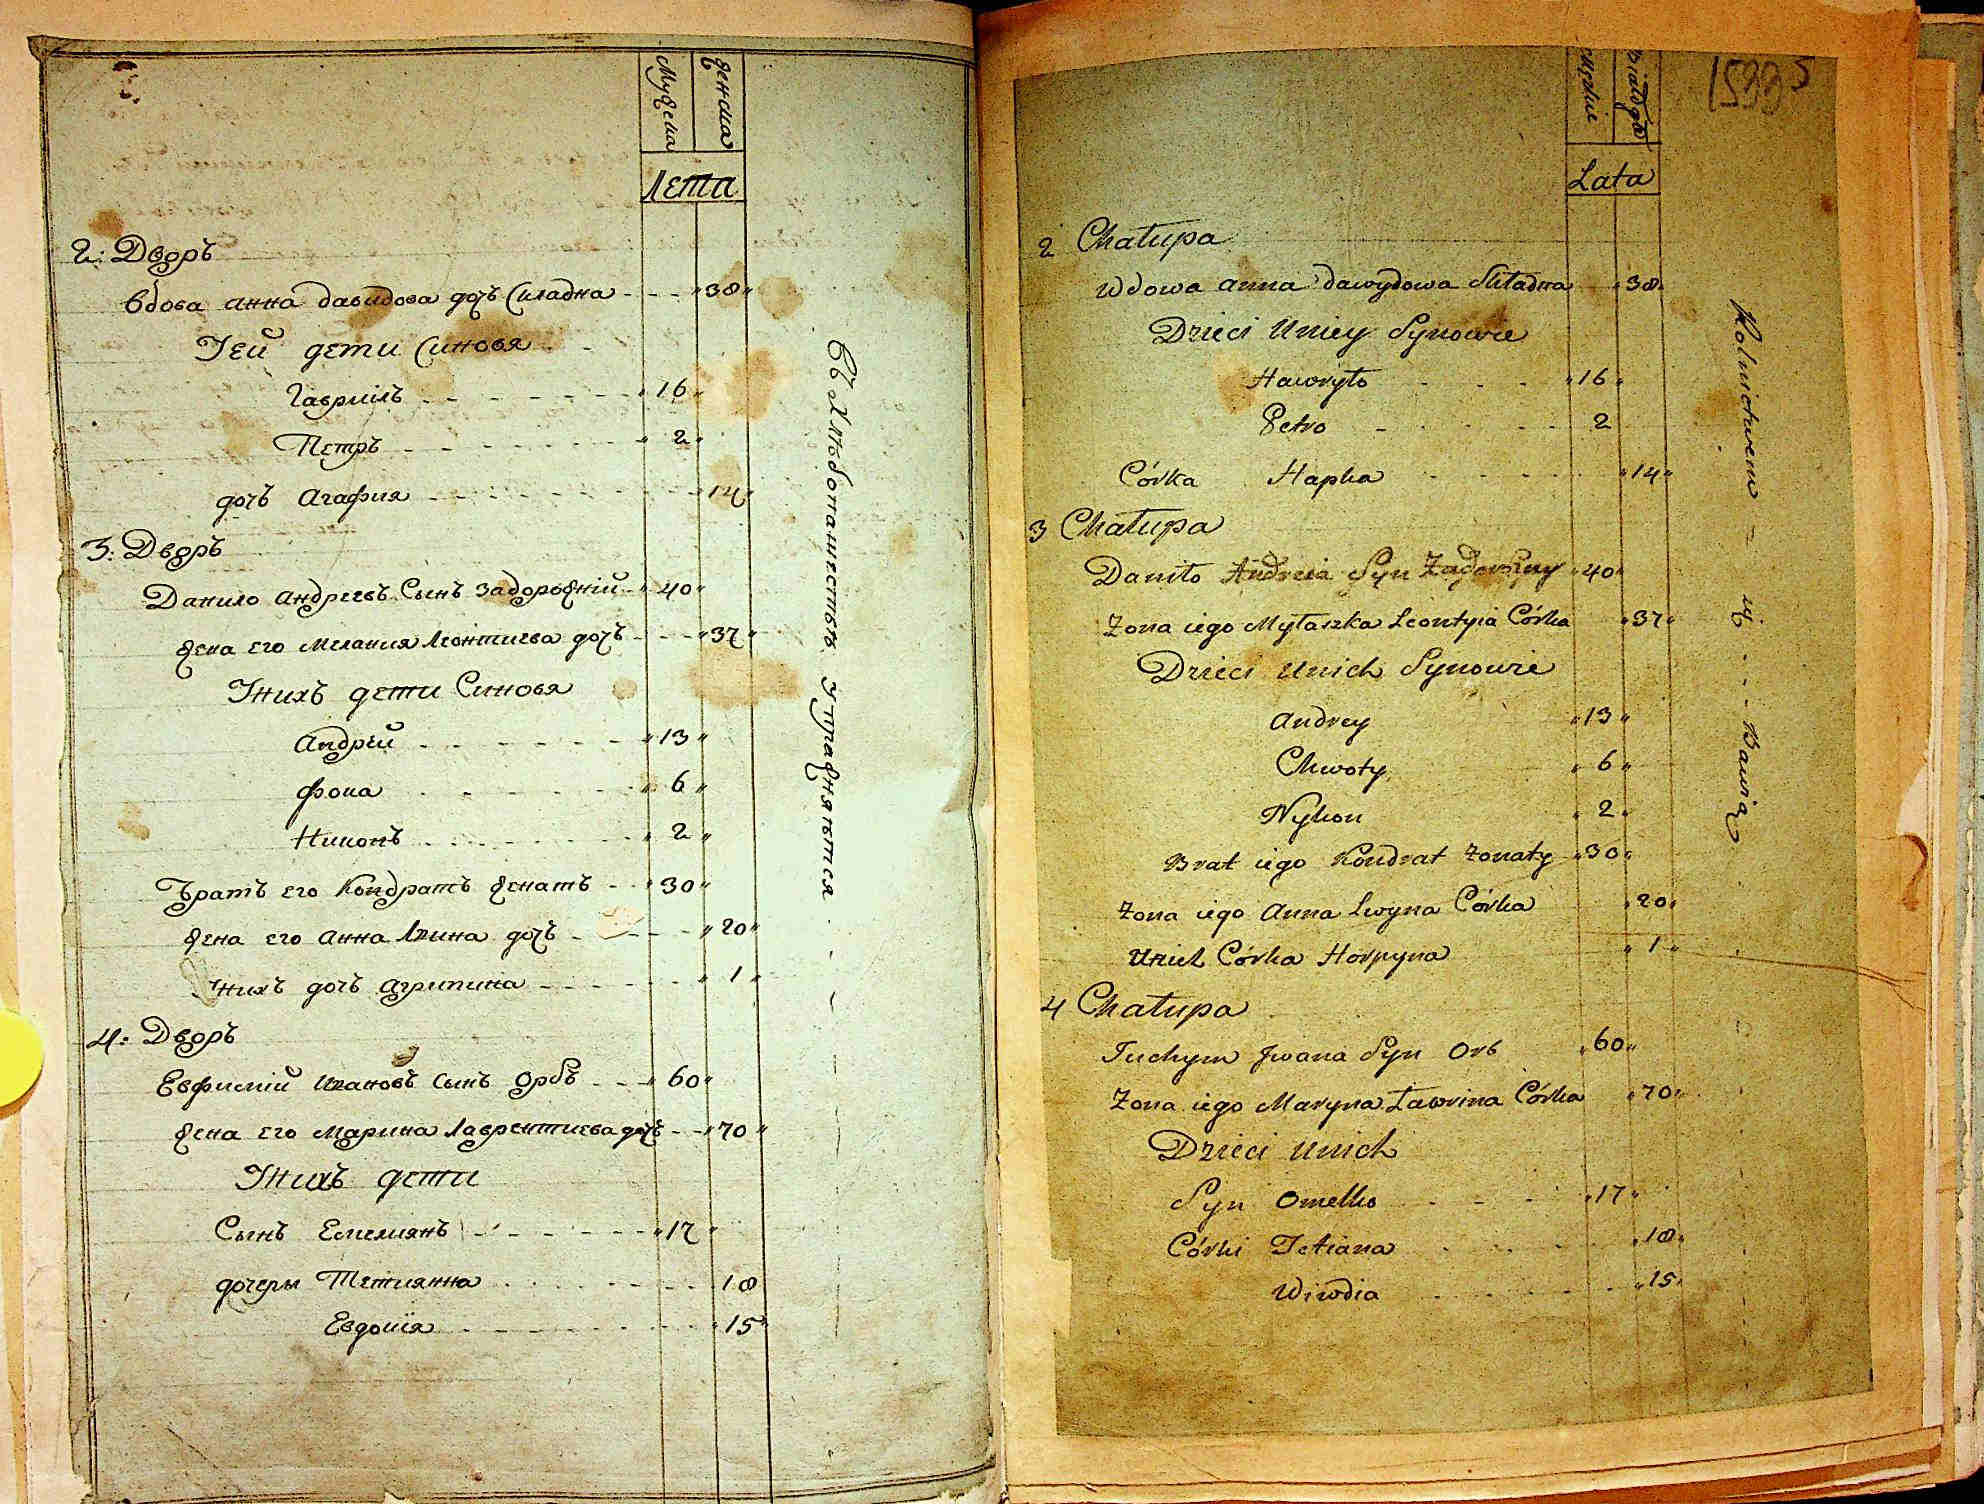 Мужеска
женска
Лета
2: Дворъ
Вдова Анна Давидова дочь Складна - - - „38„
У Ей дети Синовя
Гавриилъ - - - - - - „16„
Петръ - - - - - - „2„
дочь Агафия - - - - - - „14„
3: Дворъ
Данило Андреевъ Сынъ Задорожний - „40„
Жена его Мелания Леонтиева дочь - - - „37„
У Нихъ дети Синовя
Андрей - - - - - - „13„
Фока - - - - - - „6„
Никонъ - - - - - - „2„
Братъ его Кондратъ Женатъ - - „30„
Жена его Анна Лвина дочь - - - - „20„
У нихъ дочь Агрипина - - - - - - „1„
4: Дворъ
Евфимий Ивановъ Сынъ Орбъ - - - „60„
Жена его Марина Лаврентиева дочь - - „70„
У Нихъ дети
Сынъ Емелиянъ - - - - - - „17„
дочеры Тетиянна - - - - - - 18
Евдокия - - - - - - „15„
Въ Хлѣбопашествѣ Упражняѣтся
1533 5
Męskie
Lata
2 Chałupa
Wdowa Anna Dawydowa Składna „38„
Dzieci Uniey Synowie
Hawryło - - - „16„
Petro - - - - 2
Córka Hapka - - - - „14„
3 Chałupa
Daniło Andreia Syn Zadorożny „40„
Żona iego Myłaszka Leontyia Córka „37„
Dzieci Unich Synowie
Andrey „13„
Chwoty „6„
Nykon „2„
Brat iego Kondrat Żonaty „30„
Żona iego Anna Lwyna Córka „20„
Unich Córka Horpyna „1„
4 Chałupa
Juchym Jwana Syn Orb „60„
Żona iego Maryna Ławrina Córka „70„
Dzieci Unich
Syn Omelko - - - „17„
Córki Tetiana - - - - „18„
Wiwdia - - - - - - „15„
Rolnictwem - się - - - Bawią